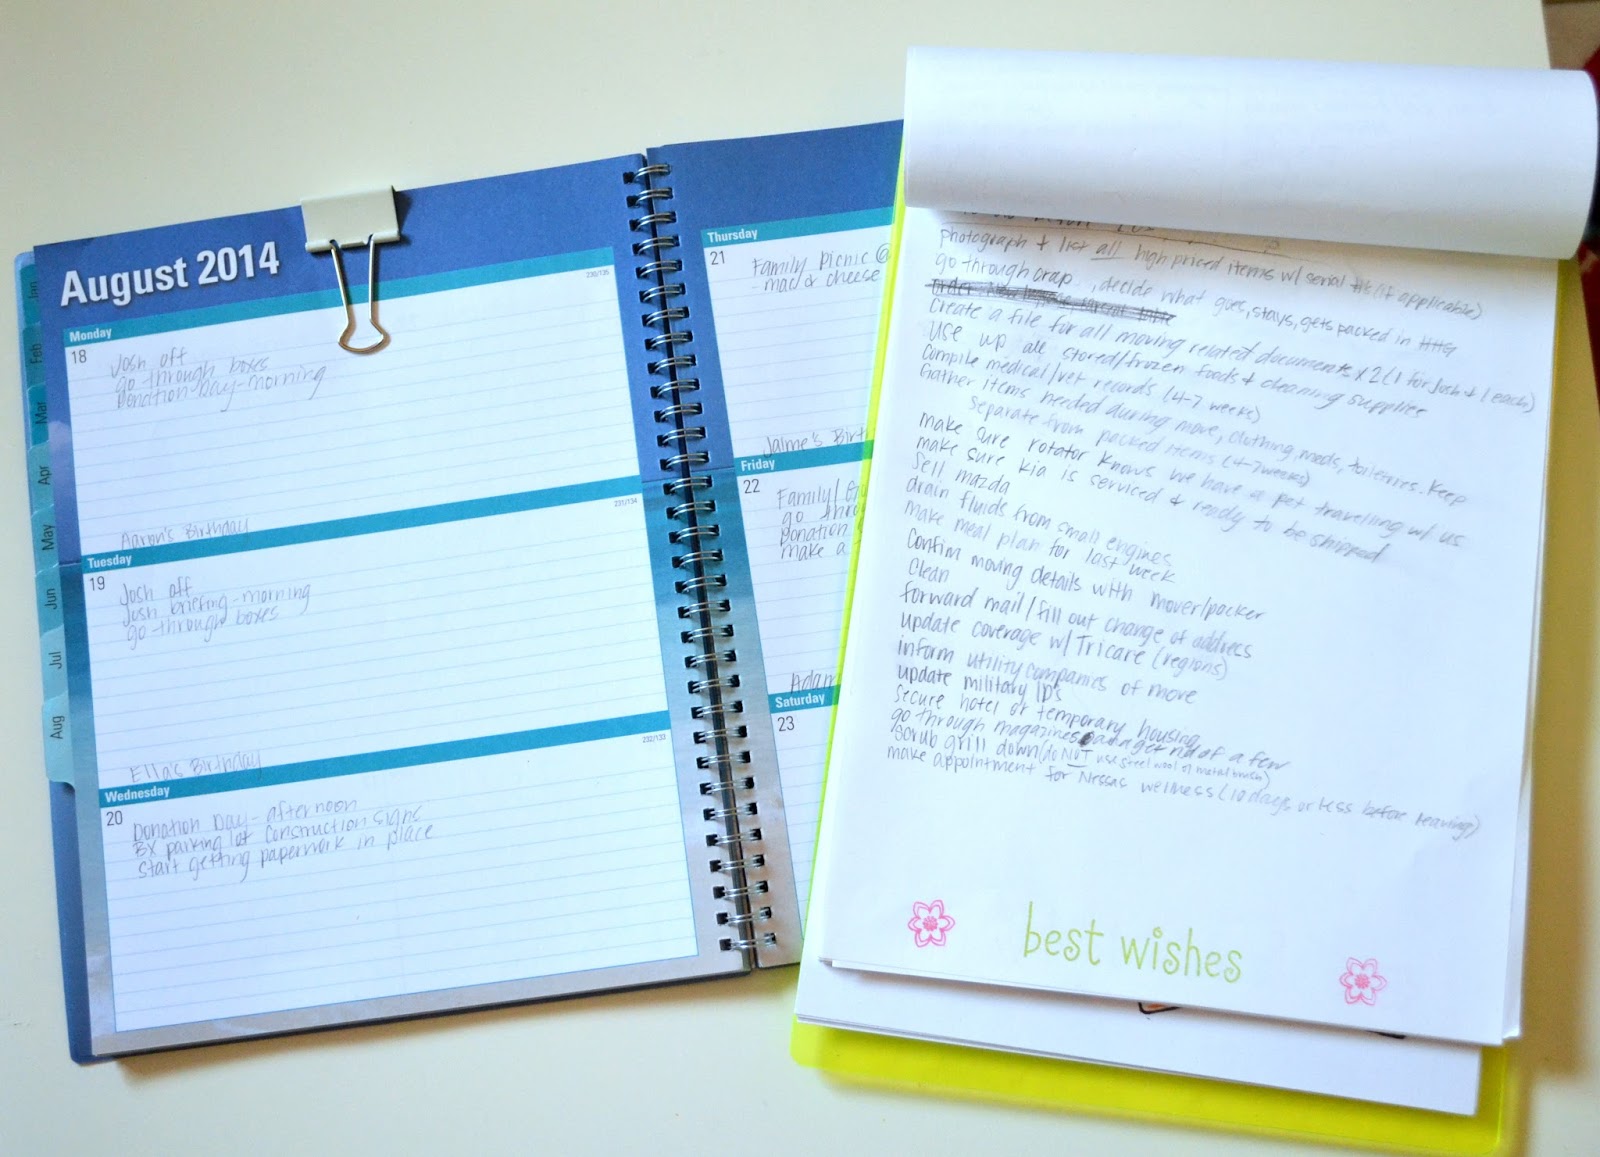 Jan
Feb
Mar
Apr
May
Jun
Jul
Aug
August 2014
230/135
Monday
18
Josh off
go through boxes
Donation Day-morning
Aaron's Birthday
231/134
Tuesday
19
Josh off
Josh briefing-morning
go through boxes
Ella's Birthday
232/133
Wednesday
20
Donation Day- afternoon
BX parking lot construction signs
start getting paperwork in place
Thursday
21
Family Picnic @
- mac & cheese
Jaime's Birth
Friday
22
Family/
go throu
Donation
make a
Adam
Saturday
23
photograph + list all high priced items w/ serial #s (if applicable)
go through crap..., decide what goes, stays, gets packed in HHG
Create a file for all moving related documents x2 (1 for Josh + 1 each)
Use up all stored/frozen foods + cleaning supplies
Compile medical/vet records (4-7 weeks)
Gather items needed during move, clothing, meds, toiletries. Keep
separate from packed items (4-7 weeks)
make sure rotator knows we have a pet travelling w/ us
make sure kia is serviced & ready to be shipped
Sell mazda
drain fluids from small engines
make meal plan for last week
Confirm moving details with mover/packer
Clean
forward mail/fill out change of address
update coverage w/ Tricare (regions)
inform utility companies of move
update military ID's
Secure hotel or temporary housing
go through magazines and get rid of a few
Scrub grill down (do NOT use steel wool or metal brush)
make appointment for Nessas wellness (10 days or less before leaving)
best wishes